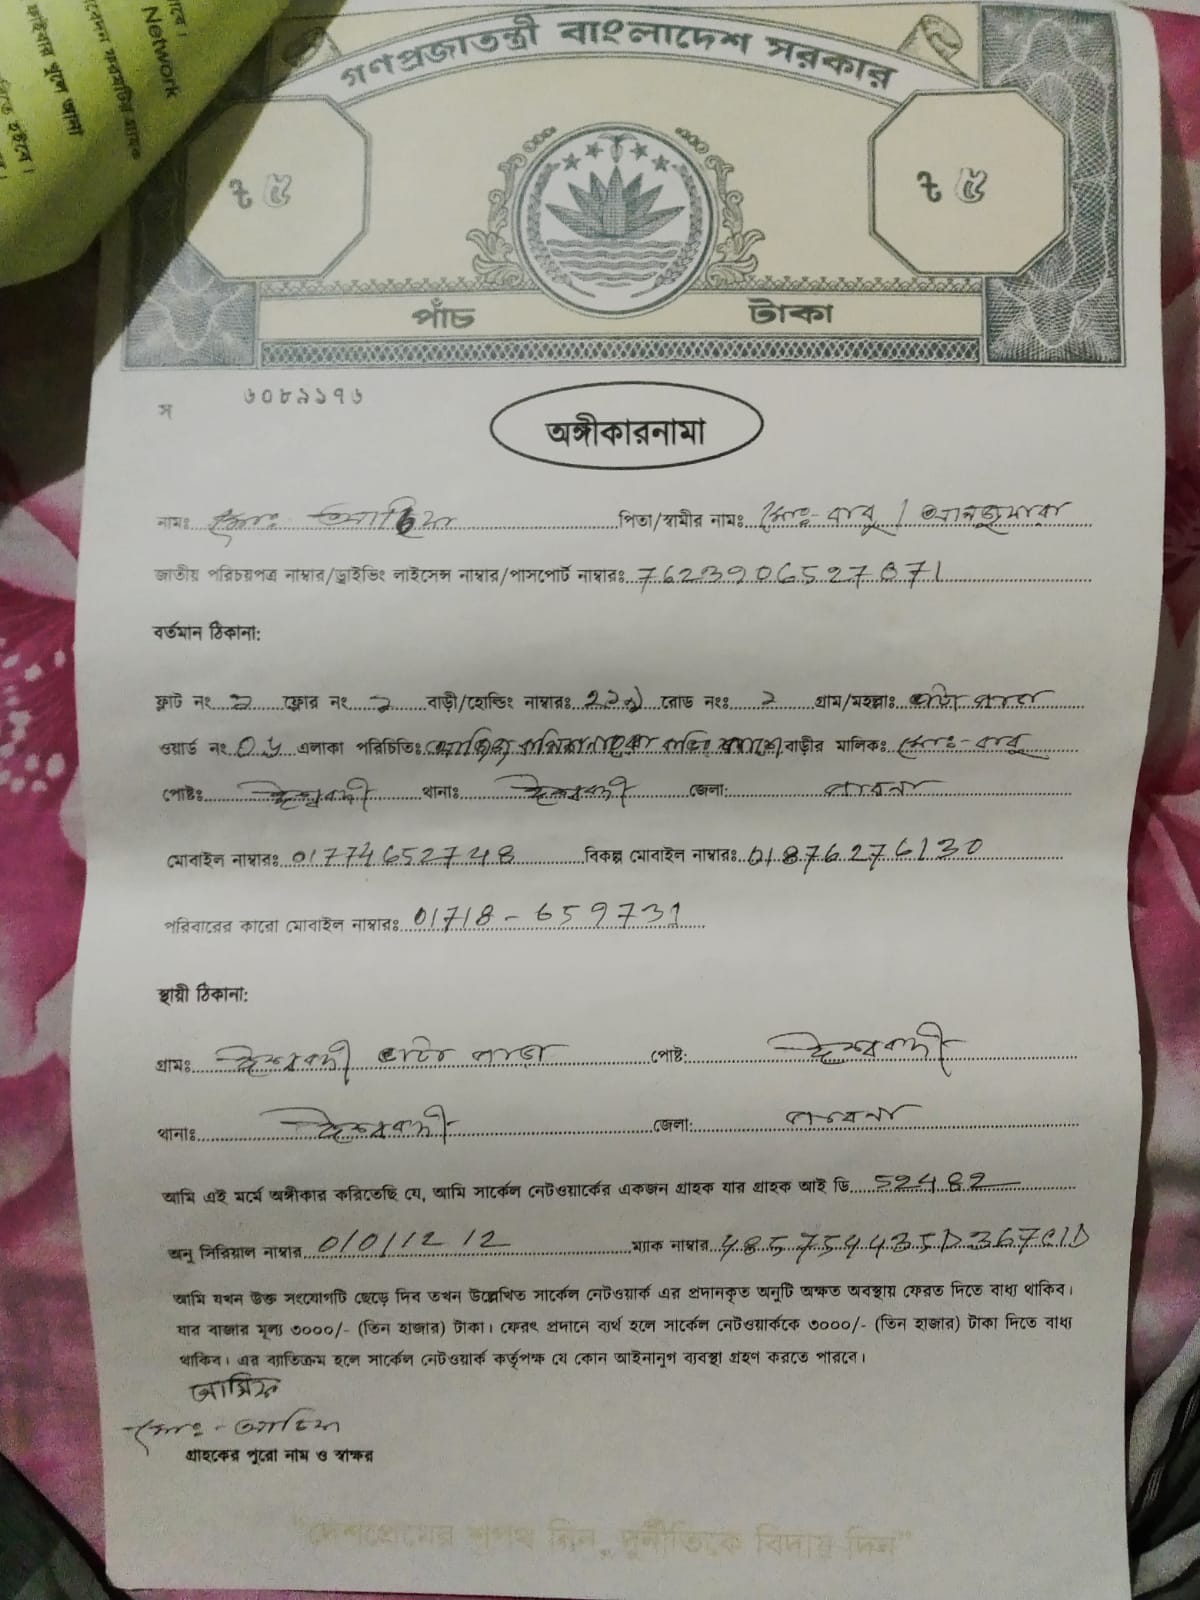 Network
গণপ্রজাতন্ত্রী বাংলাদেশ সরকার
৳ ৫ ৳ ৫
পাঁচ টাকা
স ৬০৮৯১৭৬
অঙ্গীকারনামা
নামঃ মোঃ পিতা/স্বামীর নামঃ মোঃ- বাবু / আনজুমারা
জাতীয় পরিচয়পত্র নাম্বার/ড্রাইভিং লাইসেন্স নাম্বার/পাসপোর্ট নাম্বারঃ 7623906527871
বর্তমান ঠিকানা:
ফ্লাট নং ২ ফ্লোর নং ২ বাড়ী/হোল্ডিং নাম্বারঃ রোড নংঃ ২ গ্রাম/মহল্লাঃ পাড়া
ওয়ার্ড নং এলাকা পরিচিতিঃ বাড়ীর মালিকঃ মোঃ- বাবু
পোষ্টঃ ঈশ্বরদী থানাঃ ঈশ্বরদী জেলা: পাবনা
মোবাইল নাম্বারঃ 01774652748 বিকল্প মোবাইল নাম্বারঃ 01876276130
পরিবারের কারো মোবাইল নাম্বারঃ 01718-659731
স্থায়ী ঠিকানা:
গ্রামঃ ঈশ্বরদী পাড়া পোষ্ট: ঈশ্বরদী
থানাঃ ঈশ্বরদী জেলা: পাবনা
আমি এই মর্মে অঙ্গীকার করিতেছি যে, আমি সার্কেল নেটওয়ার্কের একজন গ্রাহক যার গ্রাহক আই ডি 52482
অনু সিরিয়াল নাম্বার ম্যাক নাম্বার 485754435D367C1D
আমি যখন উক্ত সংযোগটি ছেড়ে দিব তখন উল্লেখিত সার্কেল নেটওয়ার্ক এর প্রদানকৃত অনুটি অক্ষত অবস্থায় ফেরত দিতে বাধ্য থাকিব।
যার বাজার মূল্য ৩০০০/- (তিন হাজার) টাকা। ফেরৎ প্রদানে ব্যর্থ হলে সার্কেল নেটওয়ার্ককে ৩০০০/- (তিন হাজার) টাকা দিতে বাধ্য
থাকিব। এর ব্যতিক্রম হলে সার্কেল নেটওয়ার্ক কর্তৃপক্ষ যে কোন আইনানুগ ব্যবস্থা গ্রহণ করতে পারবে।
আসিফ
মোঃ-
গ্রাহকের পুরো নাম ও স্বাক্ষর
"দেশপ্রেমের শপথ নিন, দুর্নীতিকে বিদায় দিন"